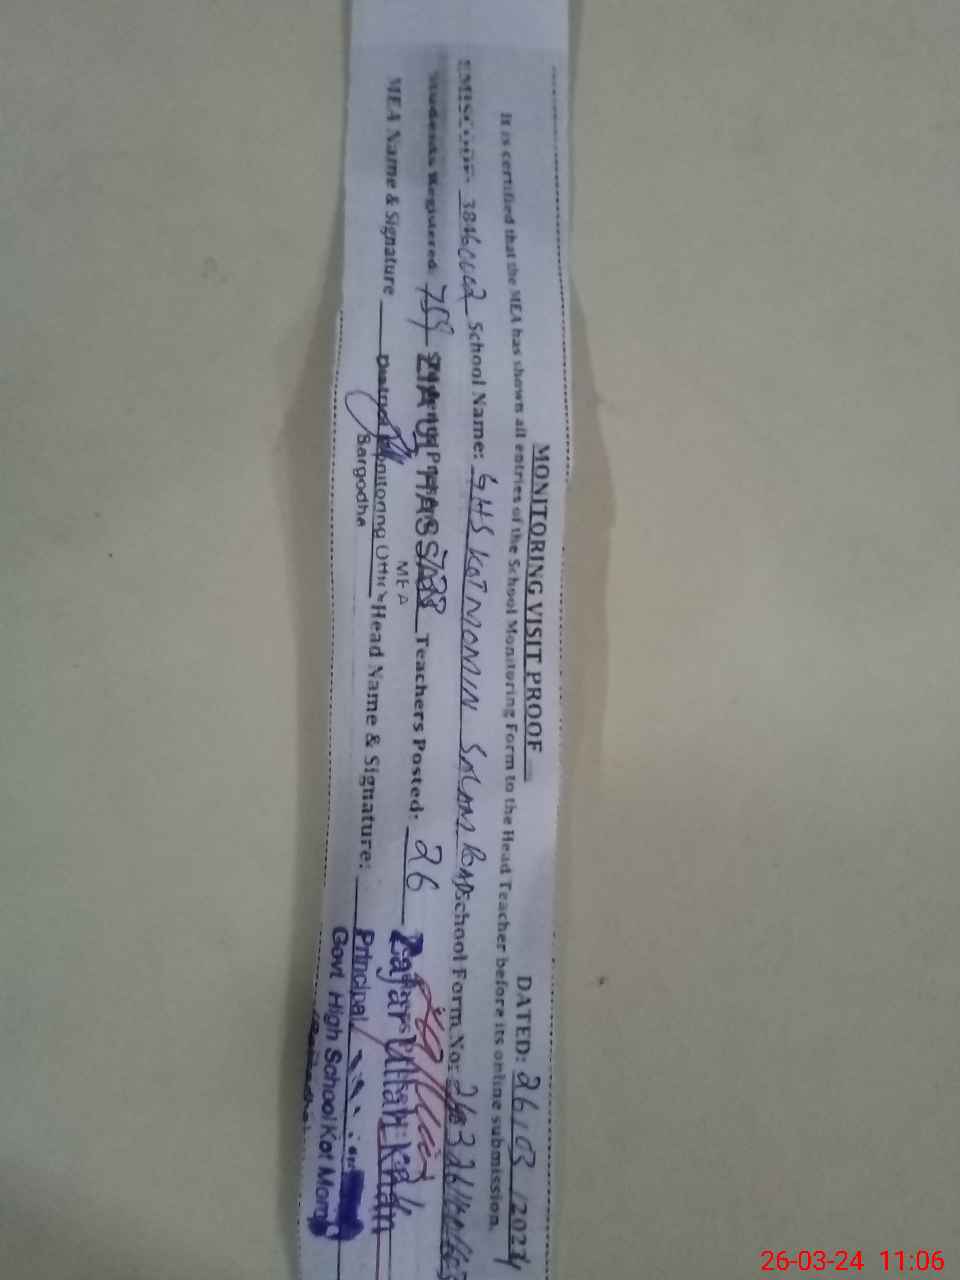 MONITORING VISIT PROOF DATED: 26/03/2024
It is certified that the MEA has shown all entries of the School Monitoring Form to the Head Teacher before its online submission.
EMISCODE: School Name: GHS KOT MOMIN SALAM ROAD School Form No:
Students Registered: 759 Teachers Posted: 26
ZIA UL HASSAN
MEA
MEA Name & Signature Head Name & Signature:
District Monitoring Office
Sargodha
Zafar Ullah Khan
Principal
Govt High School Kot Momin
26-03-24 11:06